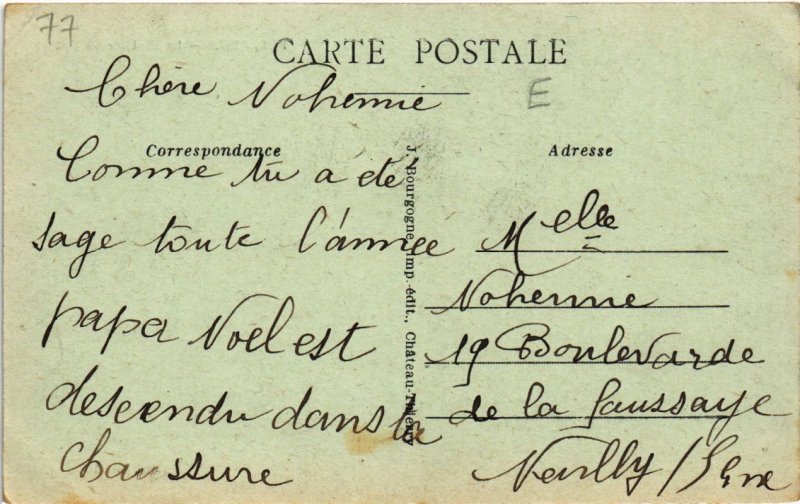 77
CARTE POSTALE
E
Chère Nohemie
Correspondance
Comme tu a été
sage toute l'année
papa Noel est
descendu dans la
chaussure
J. Bourgogne, imp.-édit., Château-Thierry
Adresse
Melle
Nohemie
19 Boulevarde
de la Saussaye
Neuilly / Sene